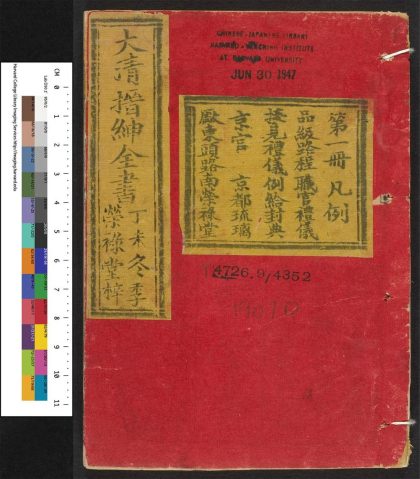 CHINESE-JAPANESE LIBRARY
HARVARD-YENCHING INSTITUTE
AT HARVARD UNIVERSITY
JUN 30 1947
大清搢紳全書
丁未冬季
榮祿堂梓
第一冊凡例
品級路程職官禮儀
接見禮儀例給封典
京官 京都琉璃
廠東頭路南榮祿堂
T4726.9/4352
1907(2)
Harvard College Library Imaging Services
CM
0
1
2
3
4
5
6
7
8
9
10
11